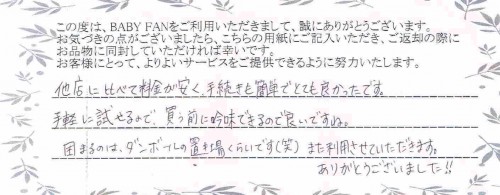 この度は、BABY FANをご利用いただきまして、誠にありがとうございます。
お気づきの点がございましたら、こちらの用紙にご記入いただき、ご返却の際に
お品物に同封していただければ幸いです。
お客様にとって、よりよいサービスをご提供できるように努力いたします。
他店に比べて料金が安く、手続きも簡単でとても良かったです。
手軽に試せるので、買う前に吟味できるので良いですね。
困まるのは、ダンボールの置き場くらいです(笑) また利用させていただきます。
ありがとうございました!!